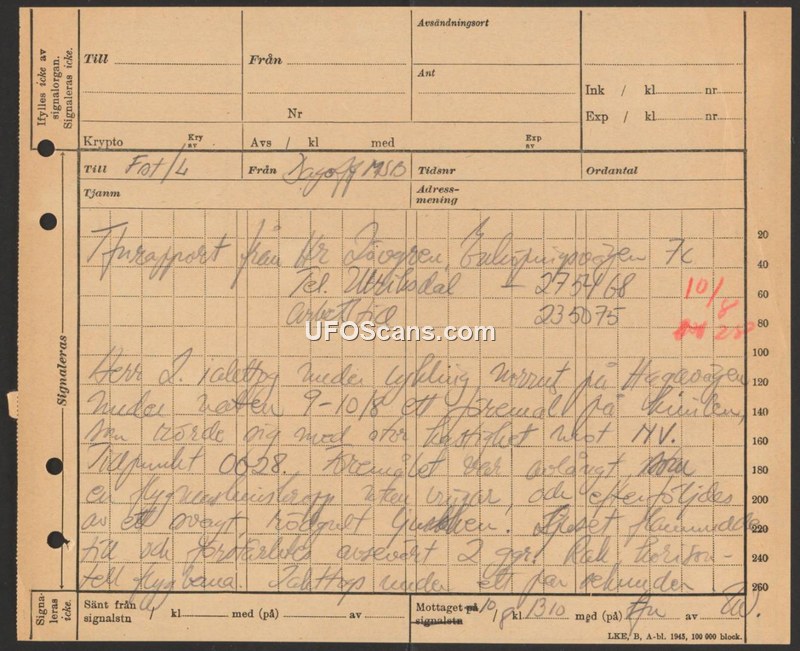 Ifylles icke av signalorgan. Signaleras icke.
Avsändningsort
Till Från
Ant
Ink / kl nr
Nr
Exp / kl nr
Krypto Kry av Avs / kl med Exp av
Till Fst/L Från Tidsnr Ordantal
Tjanm Adress-mening
Tfnrapport från Hr Enköpingsvägen 7c
Tel. Ulriksdal — 275468
Arbetstid 235075
10/8
UFOScans.com
Herr L. iakttog under cykling norrut på Hagavägen
under natten 9-10/8 ett föremål på himlen,
som rörde sig med stor hastighet mot NV.
Tidpunkt 0028. Föremålet var avlångt som
en flygmaskinskropp utan vingar, och efterföljdes
av ett svagt rödgult ljussken. Ljuset flammade
till och förstärktes avsevärt 2 ggr. Rak horison-
tell flygbana. Iakttogs under ett par sekunder
20
40
60
80
100
120
140
160
180
200
220
240
260
Signaleras
Signa-leras icke.
Sänt från signalstn / kl med (på) av
Mottaget på signalstn 10/8 kl 1310 med (på) tfn av
LKE, B, A-bl. 1943, 100 000 block.